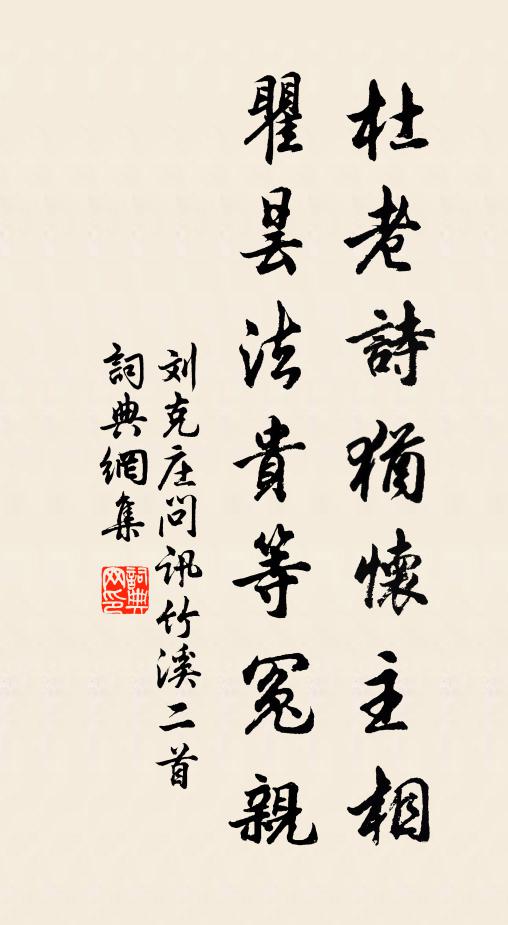 杜老詩猶懷主相
瞿昙法貴等冤親
刘克庄問訊竹溪二首
詞典網集
詞典網印